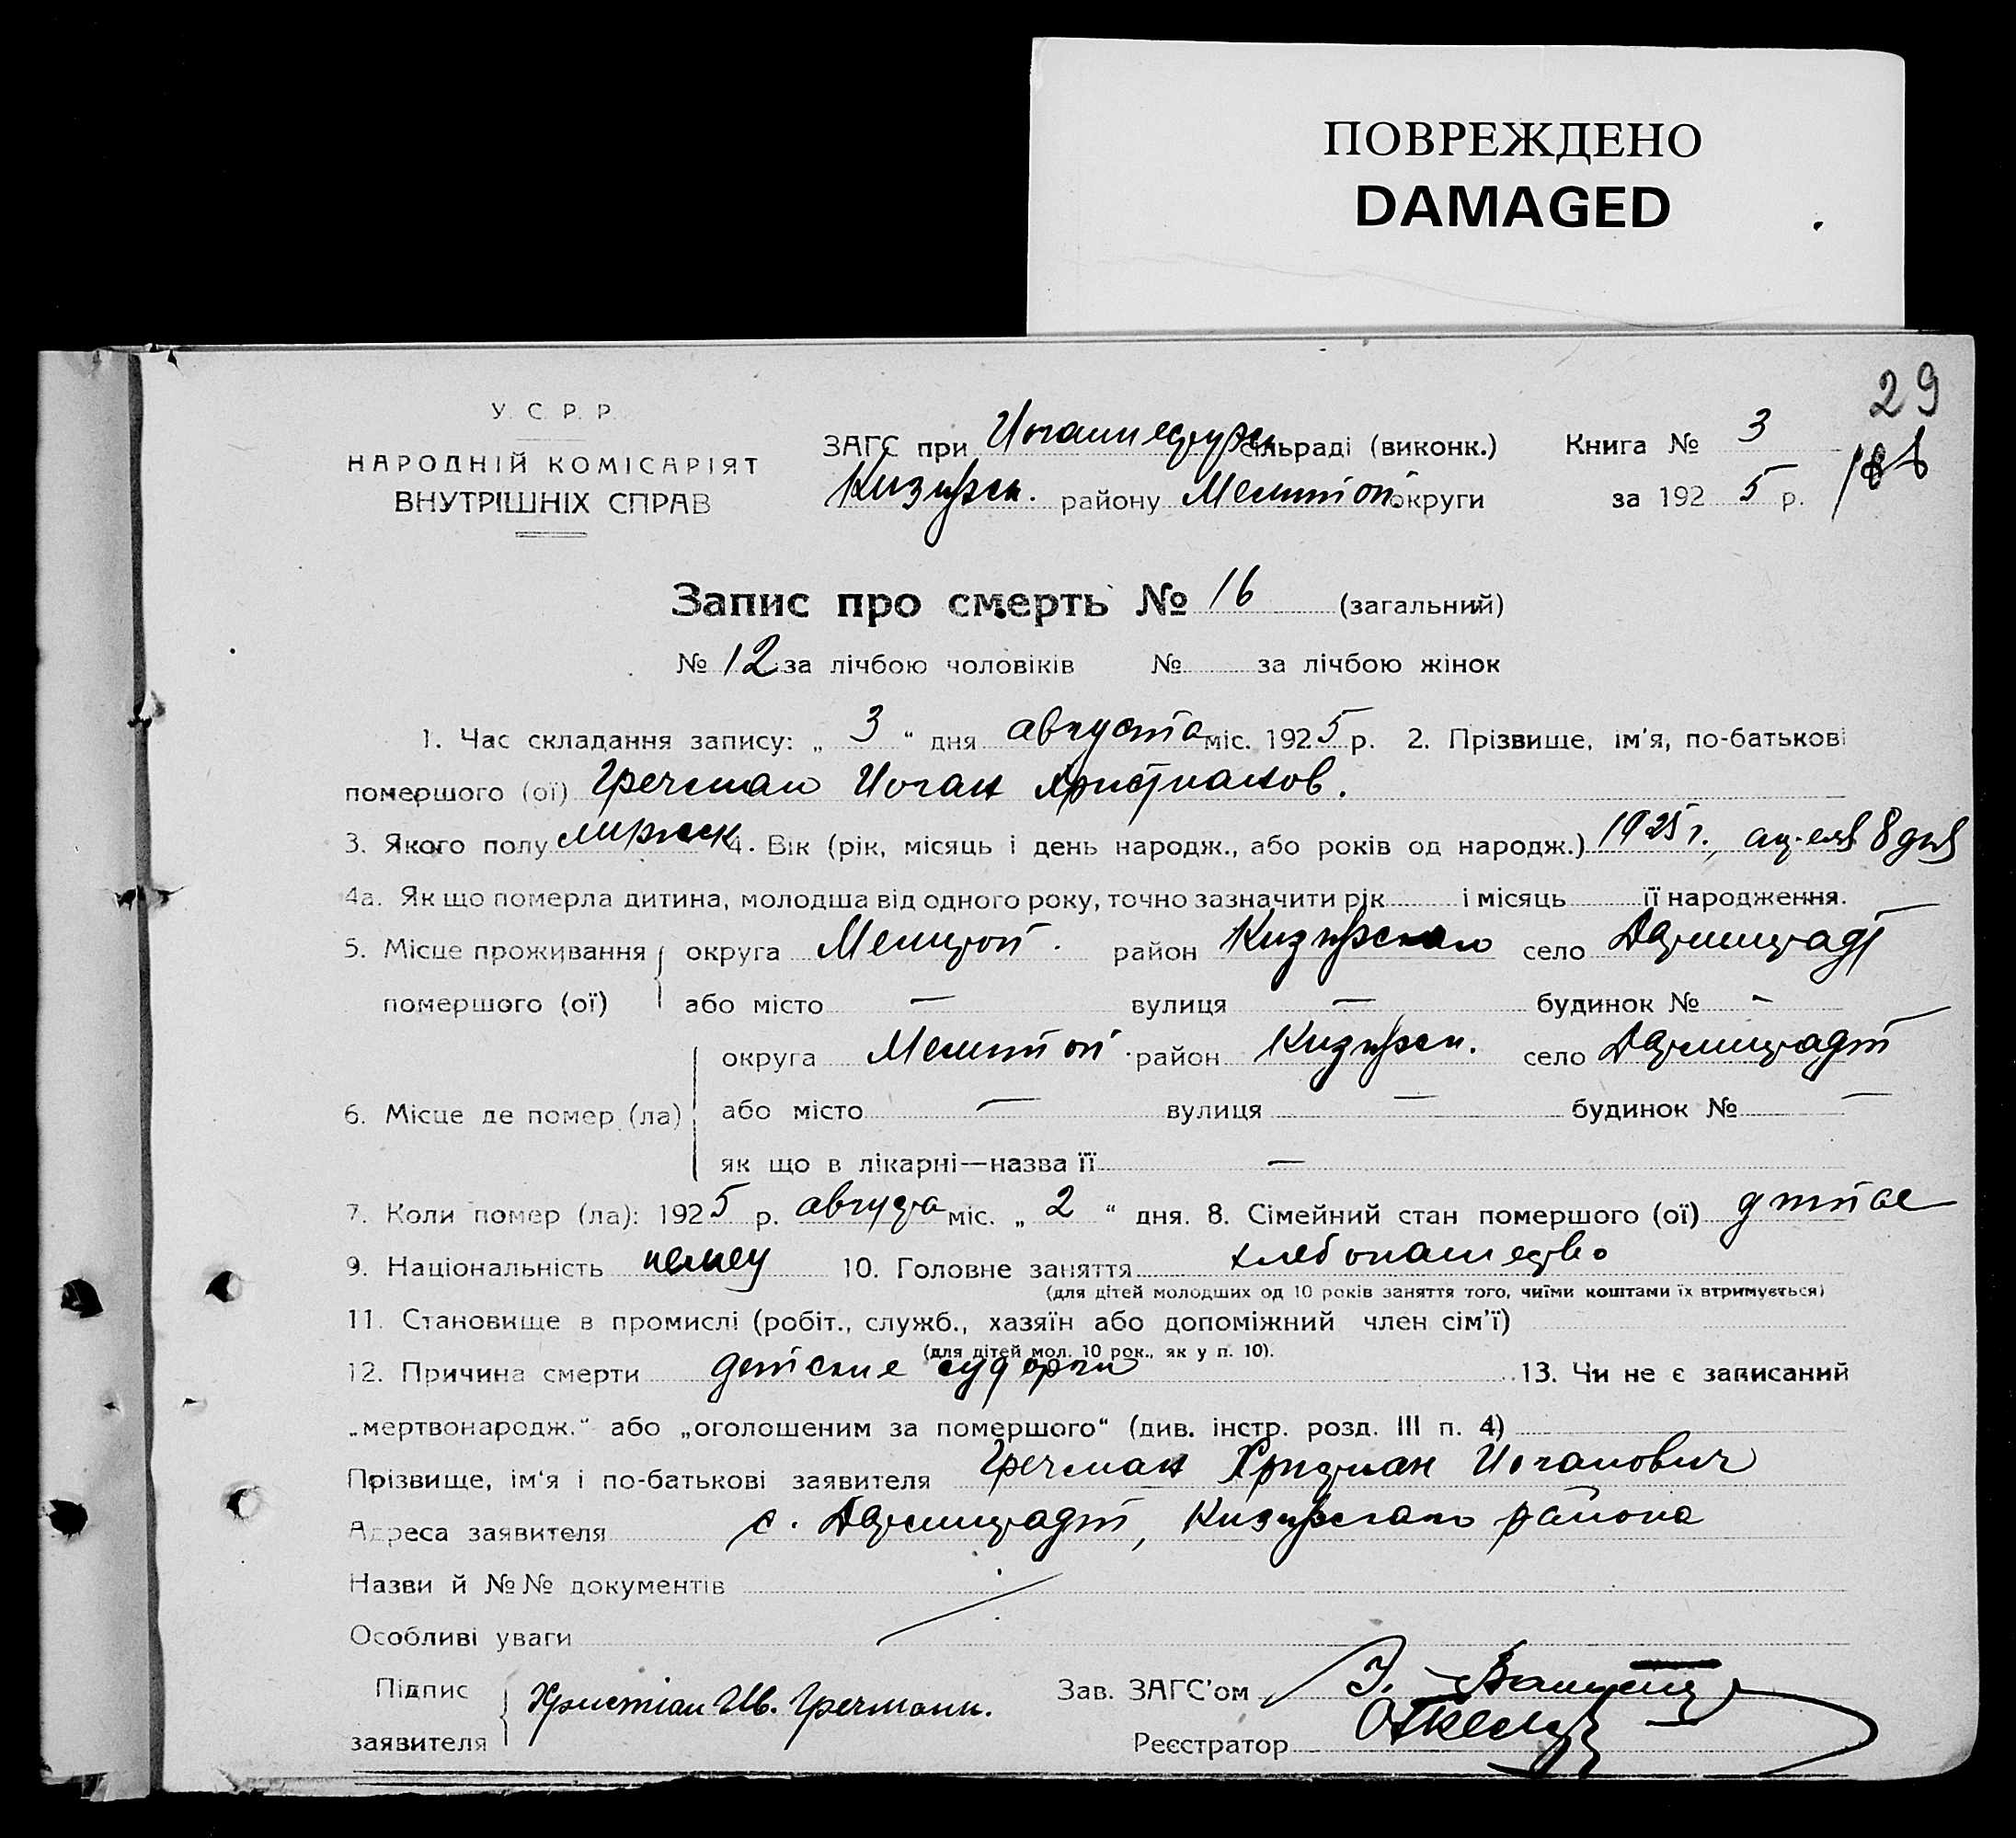 ПОВРЕЖДЕНО
DAMAGED
29
У. С. Р. Р.
НАРОДНІЙ КОМІСАРІЯТ
ВНУТРІШНІХ СПРАВ
ЗАГС при сільраді (виконк.) Книга № 3
району округи за 1925 р.
Запис про смерть № 16 (загальний)
№ 12 за лічбою чоловіків № за лічбою жінок
1. Час складання запису: „ 3 “ дня августа міс. 1925 р. 2. Прізвище, ім'я, по-батькові
помершого (ої) Гречман Иоган Христианов.
3. Якого полу мужск 4. Вік (рік, місяць і день народж., або років од народж.) 1925 г., 8 дня
4а. Як що померла дитина, молодша від одного року, точно зазначити рік і місяць її народження.
5. Місце проживання округа Мелитоп. район село Дармштадт
помершого (ої) або місто — вулиця — будинок № -
округа Мелитоп. район село Дармштадт
6. Місце де помер (ла) або місто — вулиця — будинок № —
як що в лікарні—назва її —
7. Коли помер (ла): 1925 р. августа міс. „ 2 “ дня. 8. Сімейний стан помершого (ої)
9. Національність немец 10. Головне заняття хлебопашество
(для дітей молодших од 10 років заняття того, чиїми коштами їх втримується)
11. Становище в промислі (робіт., служб., хазяїн або допоміжний член сім'ї)
(для дітей мол. 10 рок., як у п. 10).
12. Причина смерти детские судорги 13. Чи не є записаний
„мертвонародж.“ або „оголошеним за помершого“ (див. інстр. розд. III п. 4)
Прізвище, ім'я і по-батькові заявителя Гречман Христиан Иоганович
Адреса заявителя с. Дармштадт, района
Назви й №№ документів
Особливі уваги
Підпис заявителя Христіан Ив. Гречманн.
Зав. ЗАГС'ом
Реєстратор